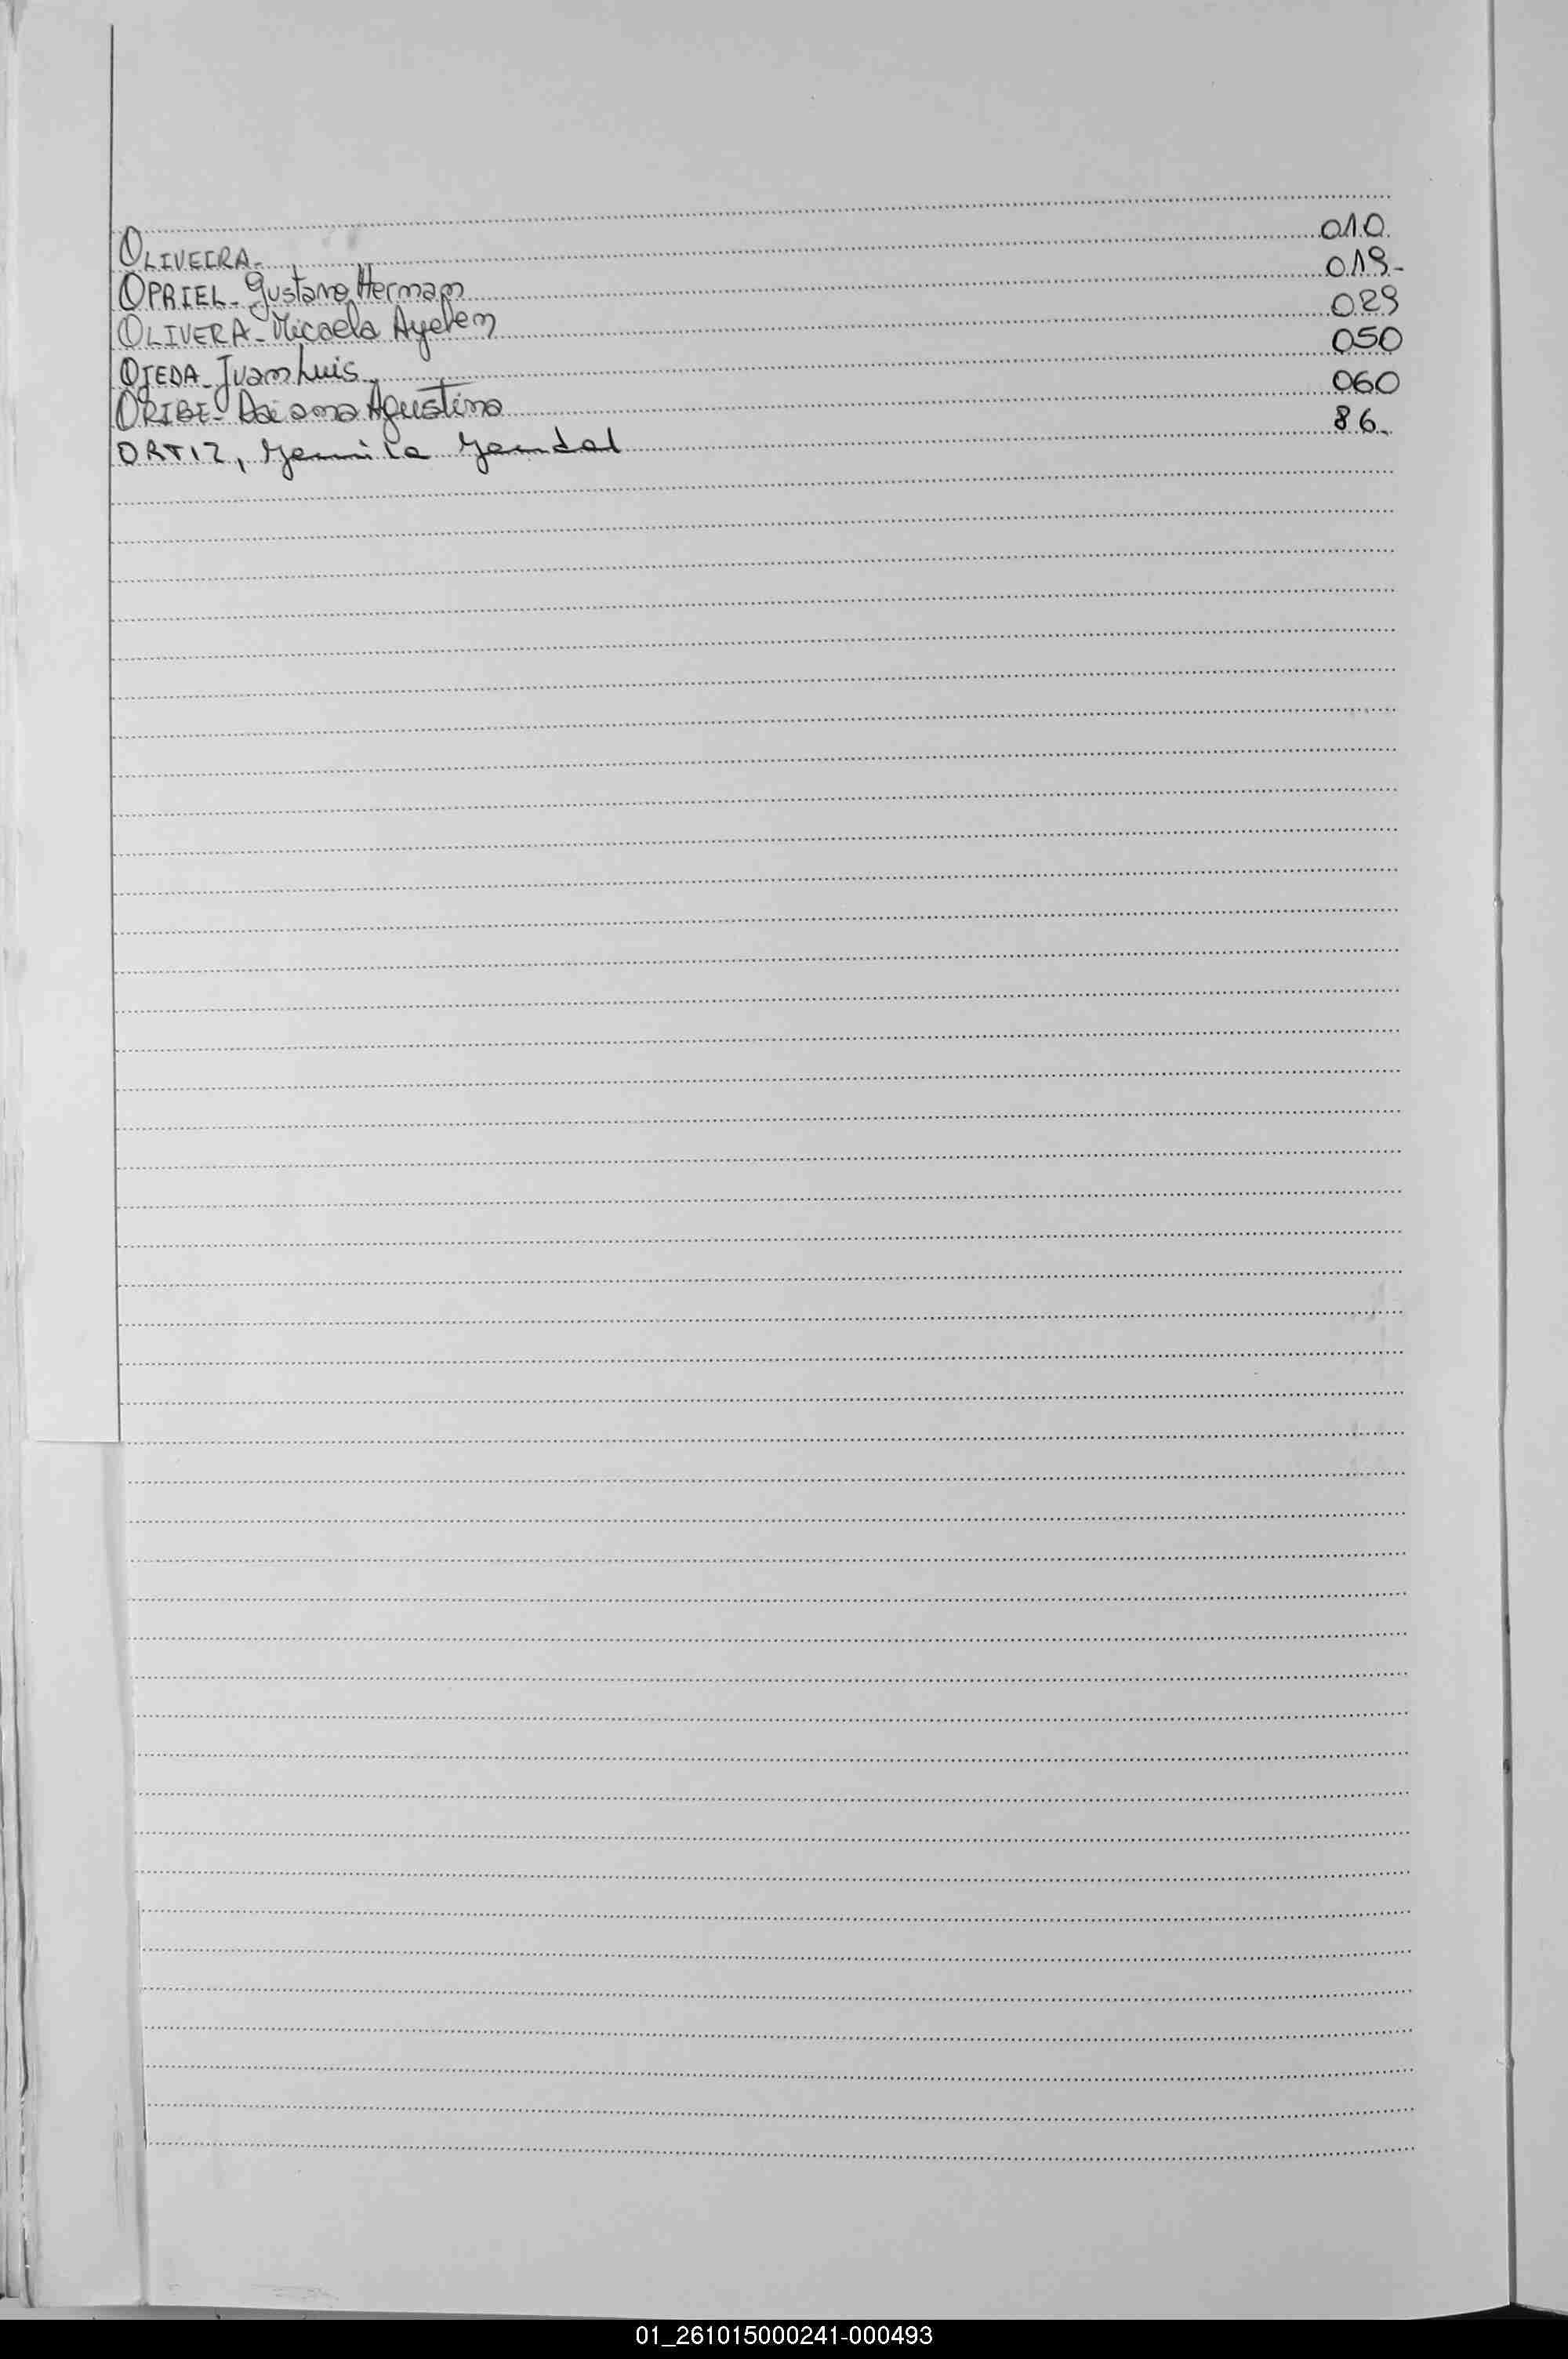 OLIVEIRA- 010
OPRIEL- Gustavo Hernan 019-
OLIVERA- Micaela Ayelen 029
OJEDA- Juan Luis 050
ORIBE- Daiana Agustina 060
ORTIZ, 86
01_261015000241-000493